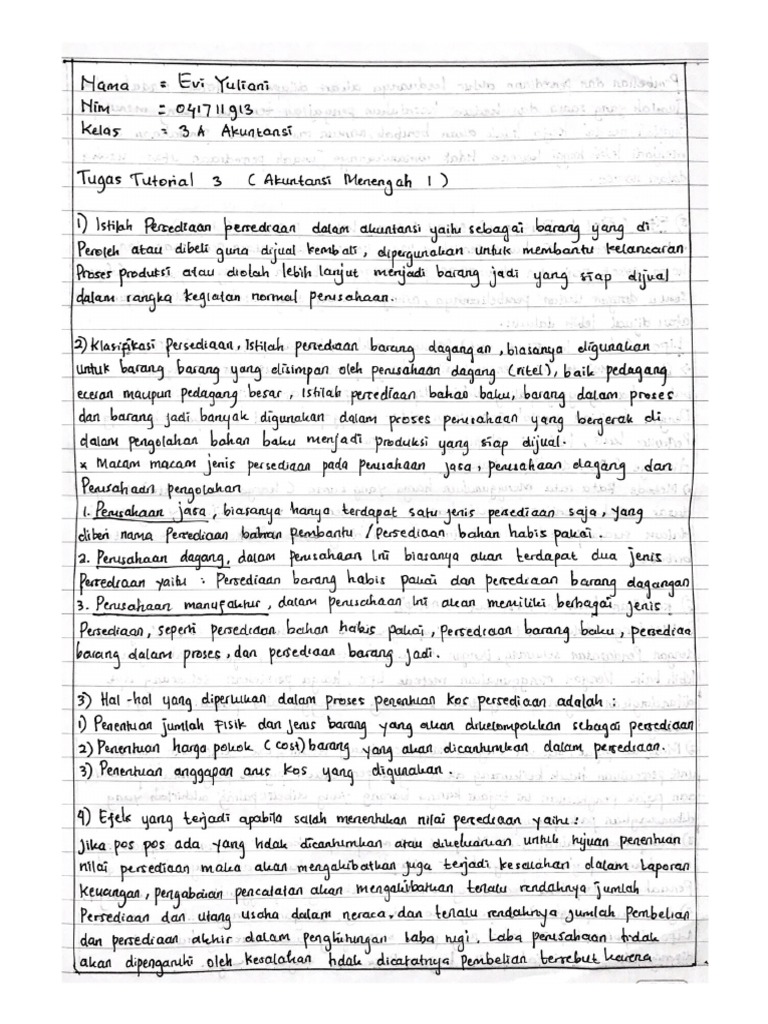 Nama = Evi Yuliani
Nim = 041711913
Kelas = 3 A Akuntansi
Tugas Tutorial 3 ( Akuntansi Menengah 1 )
1) Istilah Persediaan persediaan dalam akuntansi yaitu sebagai barang yang di
Peroleh atau dibeli guna dijual kembali, dipergunakan untuk membantu kelancaran
Proses produksi atau diolah lebih lanjut menjadi barang jadi yang siap dijual
dalam rangka kegiatan normal perusahaan.
2) Klasifikasi Persediaan, Istilah persediaan barang dagangan, biasanya digunakan
untuk barang barang yang disimpan oleh perusahaan dagang (ritel), baik pedagang
eceran maupun pedagang besar, Istilah persediaan bahan baku, barang dalam proses
dan barang jadi banyak digunakan dalam proses perusahaan yang bergerak di
dalam pengolahan bahan baku menjadi produksi yang siap dijual.
* Macam macam jenis persediaan pada perusahaan jasa, perusahaan dagang dan
Perusahaan pengolahan
1. Perusahaan jasa, biasanya hanya terdapat satu jenis persediaan saja, yang
diberi nama Persediaan bahan pembantu / Persediaan bahan habis pakai.
2. Perusahaan dagang, dalam perusahaan Ini biasanya akan terdapat dua jenis
Persediaan yaitu : Persediaan barang habis pakai dan persediaan barang dagangan
3. Perusahaan manufaktur, dalam perusahaan Ini akan memiliki berbagai jenis
Persediaan, seperti persediaan bahan habis pakai, Persediaan barang baku, persediaa
barang dalam proses, dan persediaan barang jadi.
3) Hal-hal yang diperlukan dalam proses penentuan kos persediaan adalah :
1) Penentuan jumlah fisik dan jenis barang yang akan dikelompokkan sebagai persediaan
2) Penentuan harga pokok (cost) barang yang akan dicantumkan dalam persediaan.
3) Penentuan anggapan arus kos yang digunakan.
4) Efek yang terjadi apabila salah menentukan nilai persediaan yaitu :
Jika pos pos ada yang tidak dicantumkan atau dikeluarkan untuk tujuan penentuan
nilai persediaan maka akan mengakibatkan juga terjadi kesalahan dalam Laporan
Keuangan, pengabaian pencatatan akan mengakibatkan terlalu rendahnya jumlah
Persediaan dan utang usaha dalam neraca, dan terlalu rendahnya jumlah Pembelian
dan persediaan akhir dalam penghitungan laba rugi. Laba perusahaan tidak
akan dipengaruhi oleh kesalahan tidak dicatatnya pembelian tersebut karena